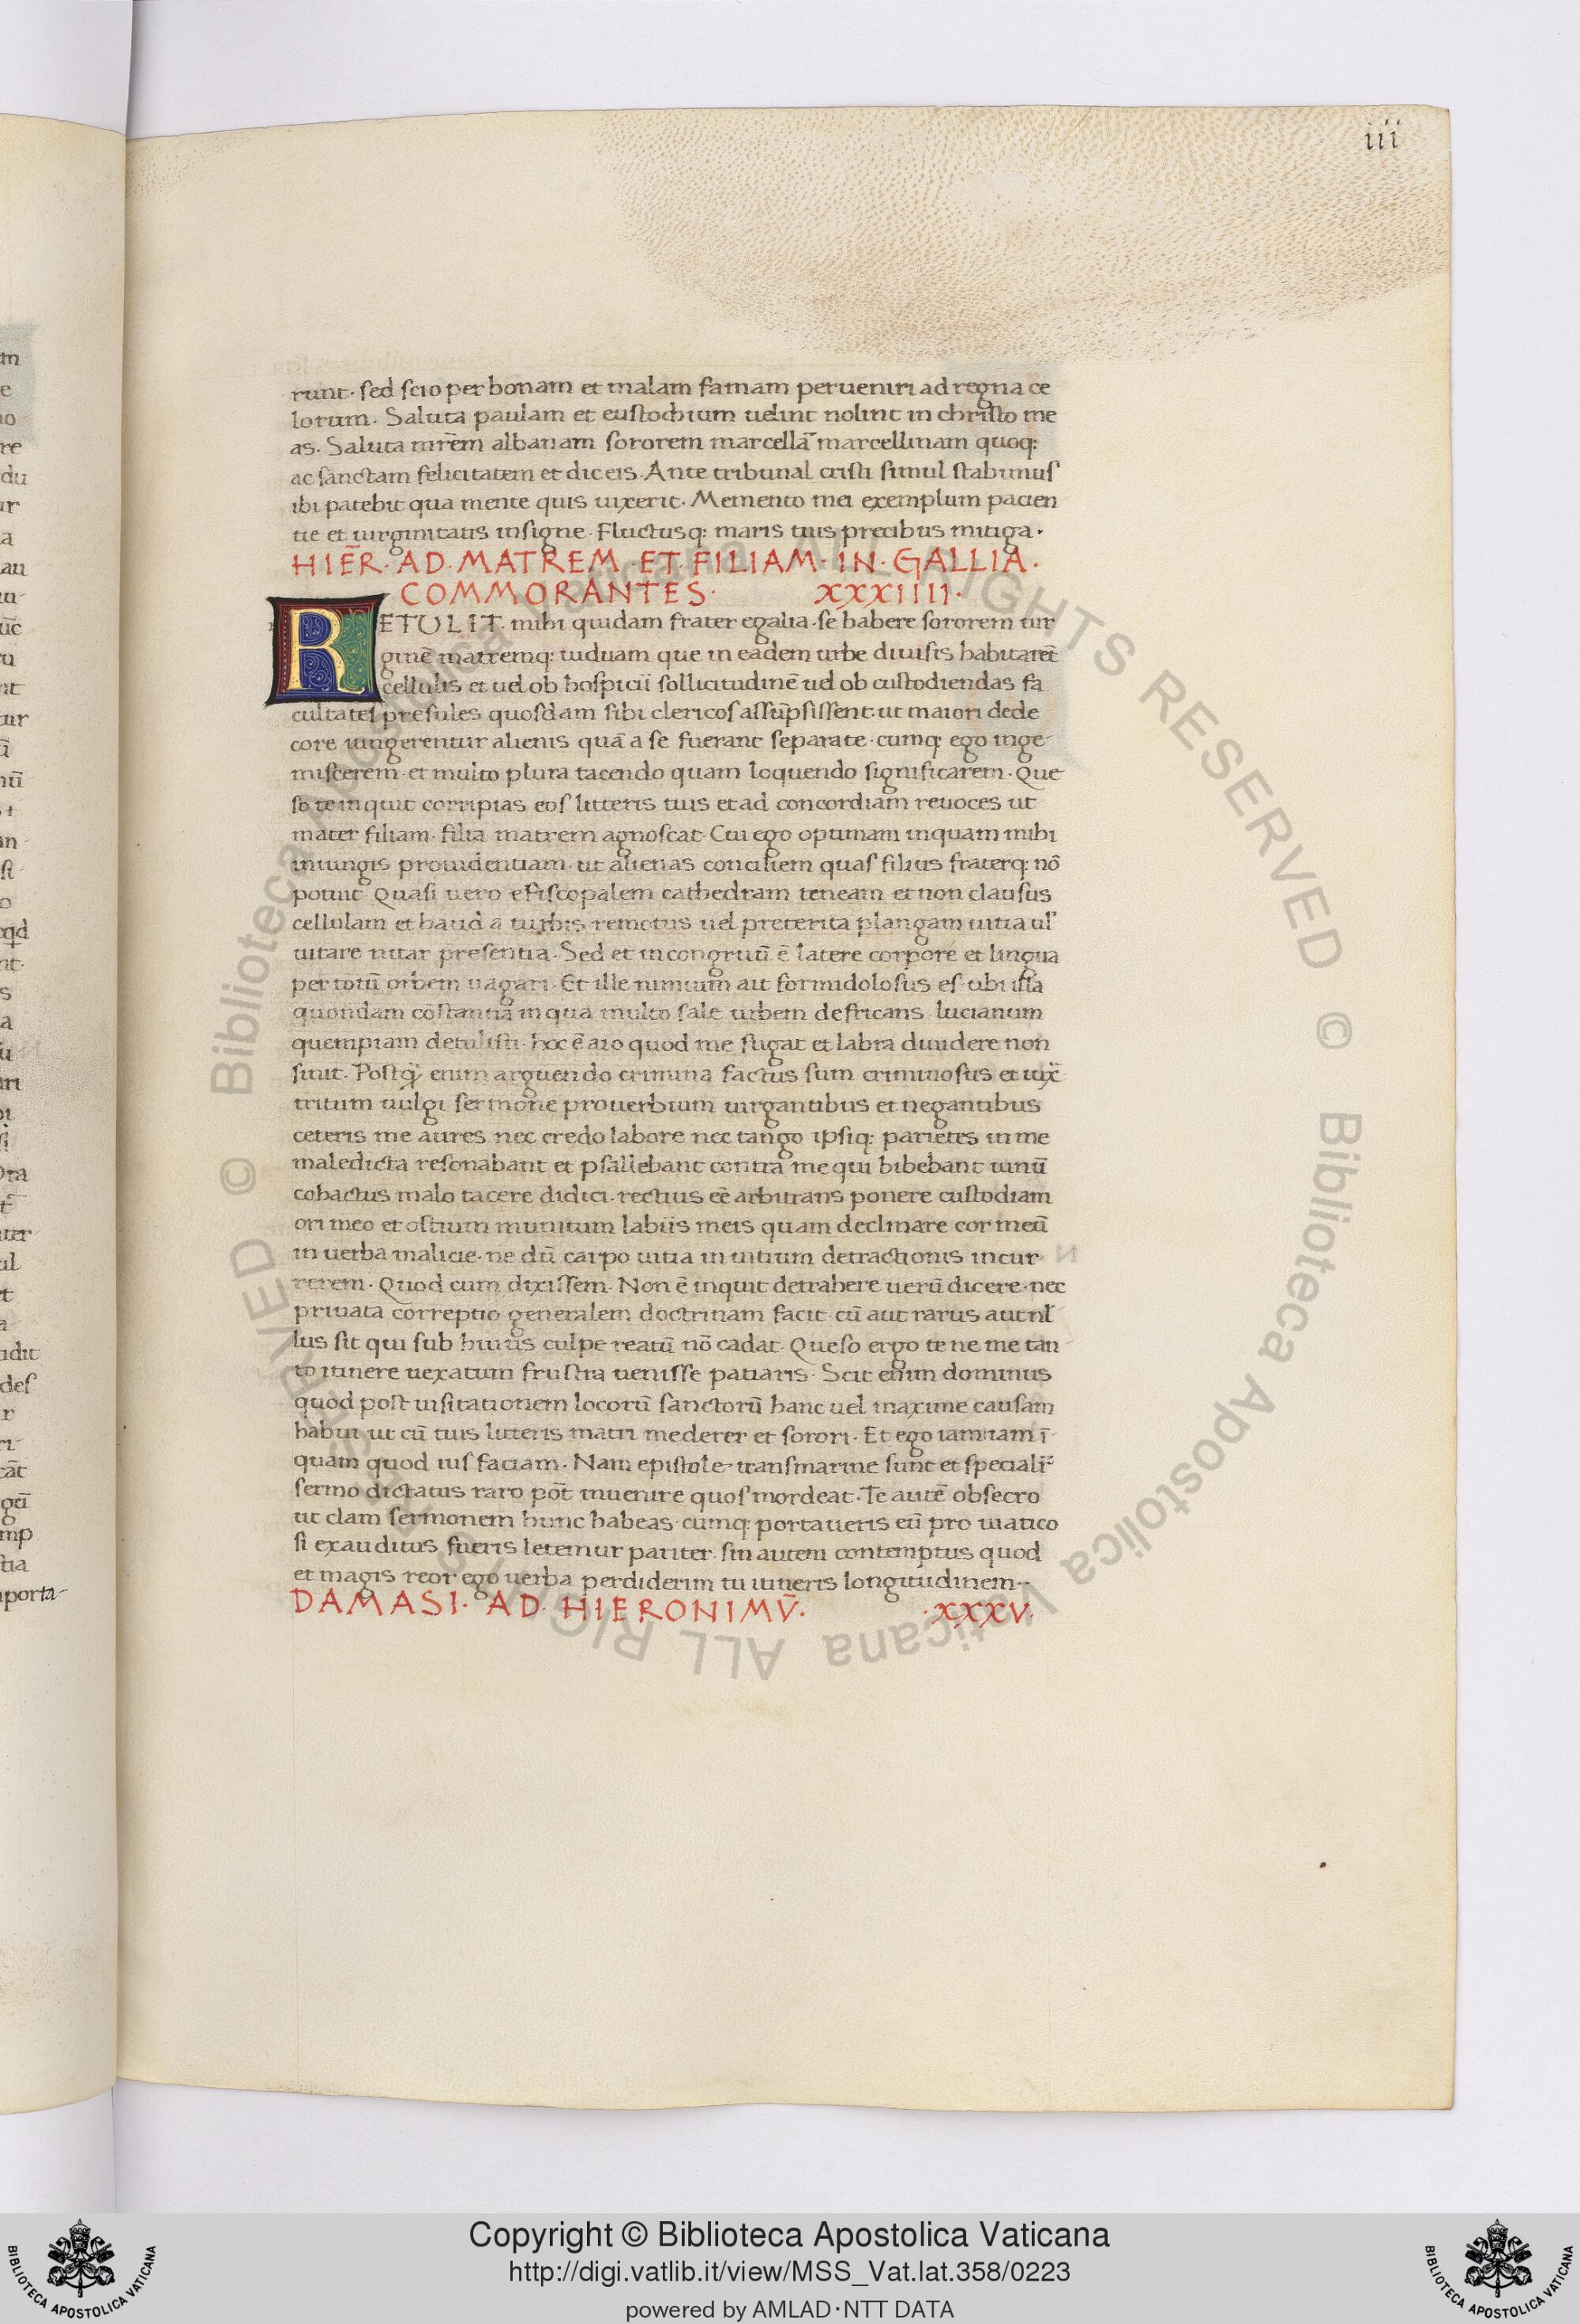 iii
runt· sed scio per bonam et malam famam perueniri ad regna ce
lorum· Saluta paulam et eustochium uelint nolint in christo me
as· Saluta mr̄em albanam sororem marcellā marcellinam quoq:
ac sanctam felicitatem et dic eis· Ante tribunal cristi simul stabimus
ibi patebit qua mente quis uixerit· Memento mei exemplum pacien
tie et uirginitatis insigne· Fluctusq: maris tuis precibus mitiga·
HIER̄· AD· MATREM· ET· FILIAM· IN· GALLIA·
COMMORANTES· XXXIIII·
RETULIT· mihi quidam frater e galia· se habere sororem uir
ginē matremq: uiduam que in eadem urbe diuisis habitarēt
cellulis et uel ob hospicii sollicitudinē uel ob custodiendas fa
cultates presules quosdam sibi clericos assūpsissent· ut maiori dede
core iungerentur alienis quā a se fuerant separate· cumq: ego inge
miscerem· et multo plura tacendo quam loquendo significarem· Que
so te inquit corripias eos litteris tuis et ad concordiam reuoces ut
mater filiam· filia matrem agnoscat· Cui ego optimam inquam mihi
iniungis prouidentiam· ut alienas conciliem quas filius fraterq: nō
potuit· Quasi uero episcopalem cathedram teneam et non clausus
cellulam et haud a turbis remotus uel preterita plangam uitia ul'
uitare nitar presentia· Sed et incongruū ē latere corpore et lingua
per totū orbem uagari· Et ille nimium ait formidolosus es· ubi illa
quondam cōstantia in qua multo sale urbem defricans lucianum
quempiam detulisti· hoc ē aio quod me fugat et labra diuidere non
sinit· Postq̄ enim arguendo crimina factus sum criminosus et iux̄
tritum uulgi sermone prouerbium uirgantibus et negantibus
ceteris me aures nec credo labore nec tango ipsiq: parietes in me
maledicta resonabant et psallebant contra me qui bibebant uinū
cohactus malo tacere didici· rectius eē arbitrans ponere custodiam
ori meo et ostium munitum labiis meis quam declinare cor meū
in uerba malicie· ne dū carpo uitia in uitium detractionis incur
rerem· Quod cum dixissem· Non ē inquit detrahere uerū dicere· nec
priuata correptio generalem doctrinam facit· cū aut rarus aut nl
lus sit qui sub huius culpe reatū nō cadat· Queso ergo te ne me tan
to itinere uexatum frustra uenisse patiaris· Scit enim dominus
quod post uisitationem locorū sanctorū hanc uel maxime causam
habui ut cū tuis litteris matri mederer et sorori· Et ego iam iam ī
quam quod uis faciam· Nam epistole transmarine sunt et speciali
sermo dictatus raro pōt inuenire quos mordeat· Te autē obsecro
ut clam sermonem hunc habeas· cumq: portaueris eū pro uiatico
si exauditus fueris letemur pariter· sin autem contemptus quod
et magis reor ego uerba perdiderim tu itineris longitudinem·
DAMASI· AD· HIERONIMV̄· ·XXXV·
Copyright © Biblioteca Apostolica Vaticana
http://digi.vatlib.it/view/MSS_Vat.lat.358/0223
powered by AMLAD·NTT DATA
BIBLIOTECA APOSTOLICA VATICANA
BIBLIOTECA APOSTOLICA VATICANA